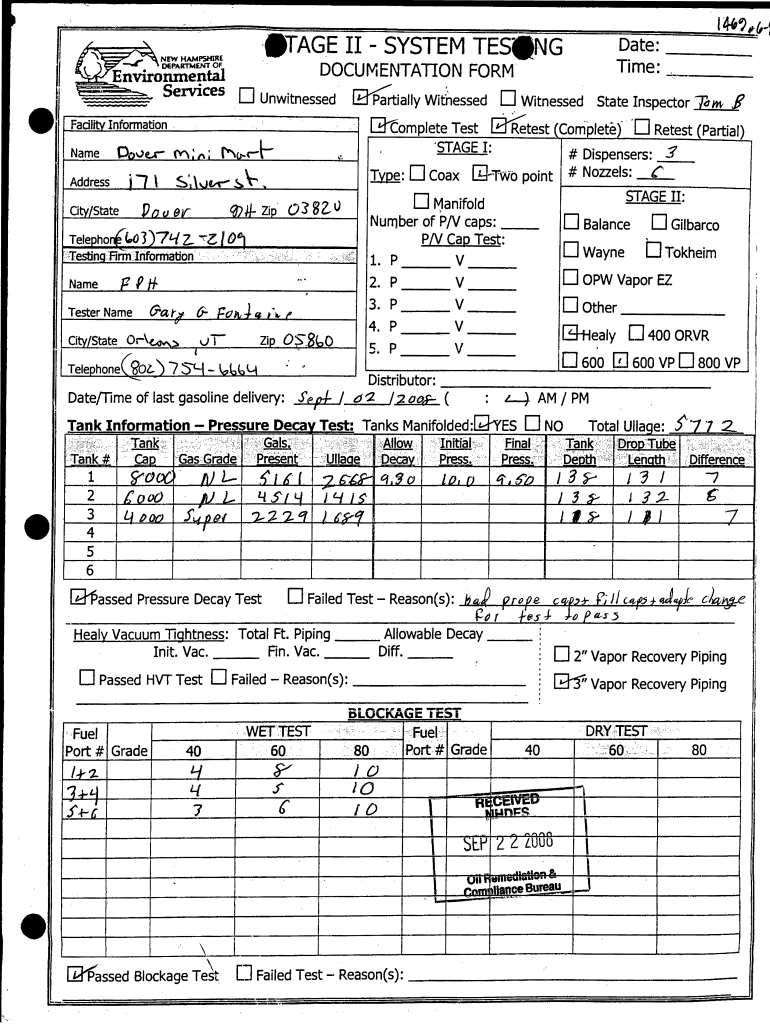 STAGE II - SYSTEM TESTING Date:
DOCUMENTATION FORM Time:
NEW HAMPSHIRE
DEPARTMENT OF
Environmental
Services
Unwitnessed Partially Witnessed Witnessed State Inspector Tom B
Facility Information
Name Dover Mini Mart
Address 171 Silver st.
City/State Dover NH Zip 03820
Telephone (603)742-2109
Testing Firm Information
Name FPH
Tester Name Gary G Fontaine
City/State Orleans VT Zip 05860
Telephone (802)754-6664
Complete Test Retest (Complete) Retest (Partial)
STAGE I:
Type: Coax Two point
Manifold
Number of P/V caps:
P/V Cap Test:
1. P V
2. P V
3. P V
4. P V
5. P V
# Dispensers: 3
# Nozzels: 6
STAGE II:
Balance Gilbarco
Wayne Tokheim
OPW Vapor EZ
Other
Healy 400 ORVR
600 600 VP 800 VP
Distributor:
Date/Time of last gasoline delivery: Sept / 02 / 2008 ( : ) AM / PM
Tank Information – Pressure Decay Test: Tanks Manifolded: YES NO Total Ullage: 5772
Tank # Tank Cap Gas Grade Gals. Present Ullage Allow Decay Initial Press. Final Press. Tank Depth Drop Tube Length Difference
1 8000 NL 5161 2668 9.30 10.0 9.50 138 131 7
2 6000 NL 4514 1415 138 132 6
3 4000 Super 2229 1689 7
4
5
6
Passed Pressure Decay Test Failed Test – Reason(s): bad prope caps + fill caps + adapt change
For test to pass
Healy Vacuum Tightness: Total Ft. Piping Allowable Decay
Init. Vac. Fin. Vac. Diff.
Passed HVT Test Failed – Reason(s):
2" Vapor Recovery Piping
3" Vapor Recovery Piping
BLOCKAGE TEST
Fuel Port # Grade WET TEST 40 60 80 Fuel Port # Grade DRY TEST 40 60 80
1+2 4 8 10
3+4 4 5 10
5+6 3 6 10
RECEIVED
NHDES
SEP 22 2008
Oil Remediation &
Compliance Bureau
Passed Blockage Test Failed Test – Reason(s):